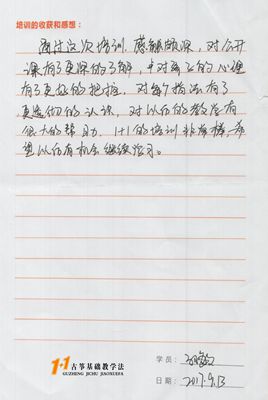 培训的收获和感想:
通过这次培训,感触颇深,对公开
课有了更深的了解,也对孩子的心理
有了更好的把握,对每个指法有了
更透彻的认识,对以后的教学有
很大的帮助,1+1的培训非常棒,希
望以后有机会继续学习。
1+1 古筝基础教学法
GUZHENG JICHU JIAOXUEFA
学员:
日期: 2017.9.13